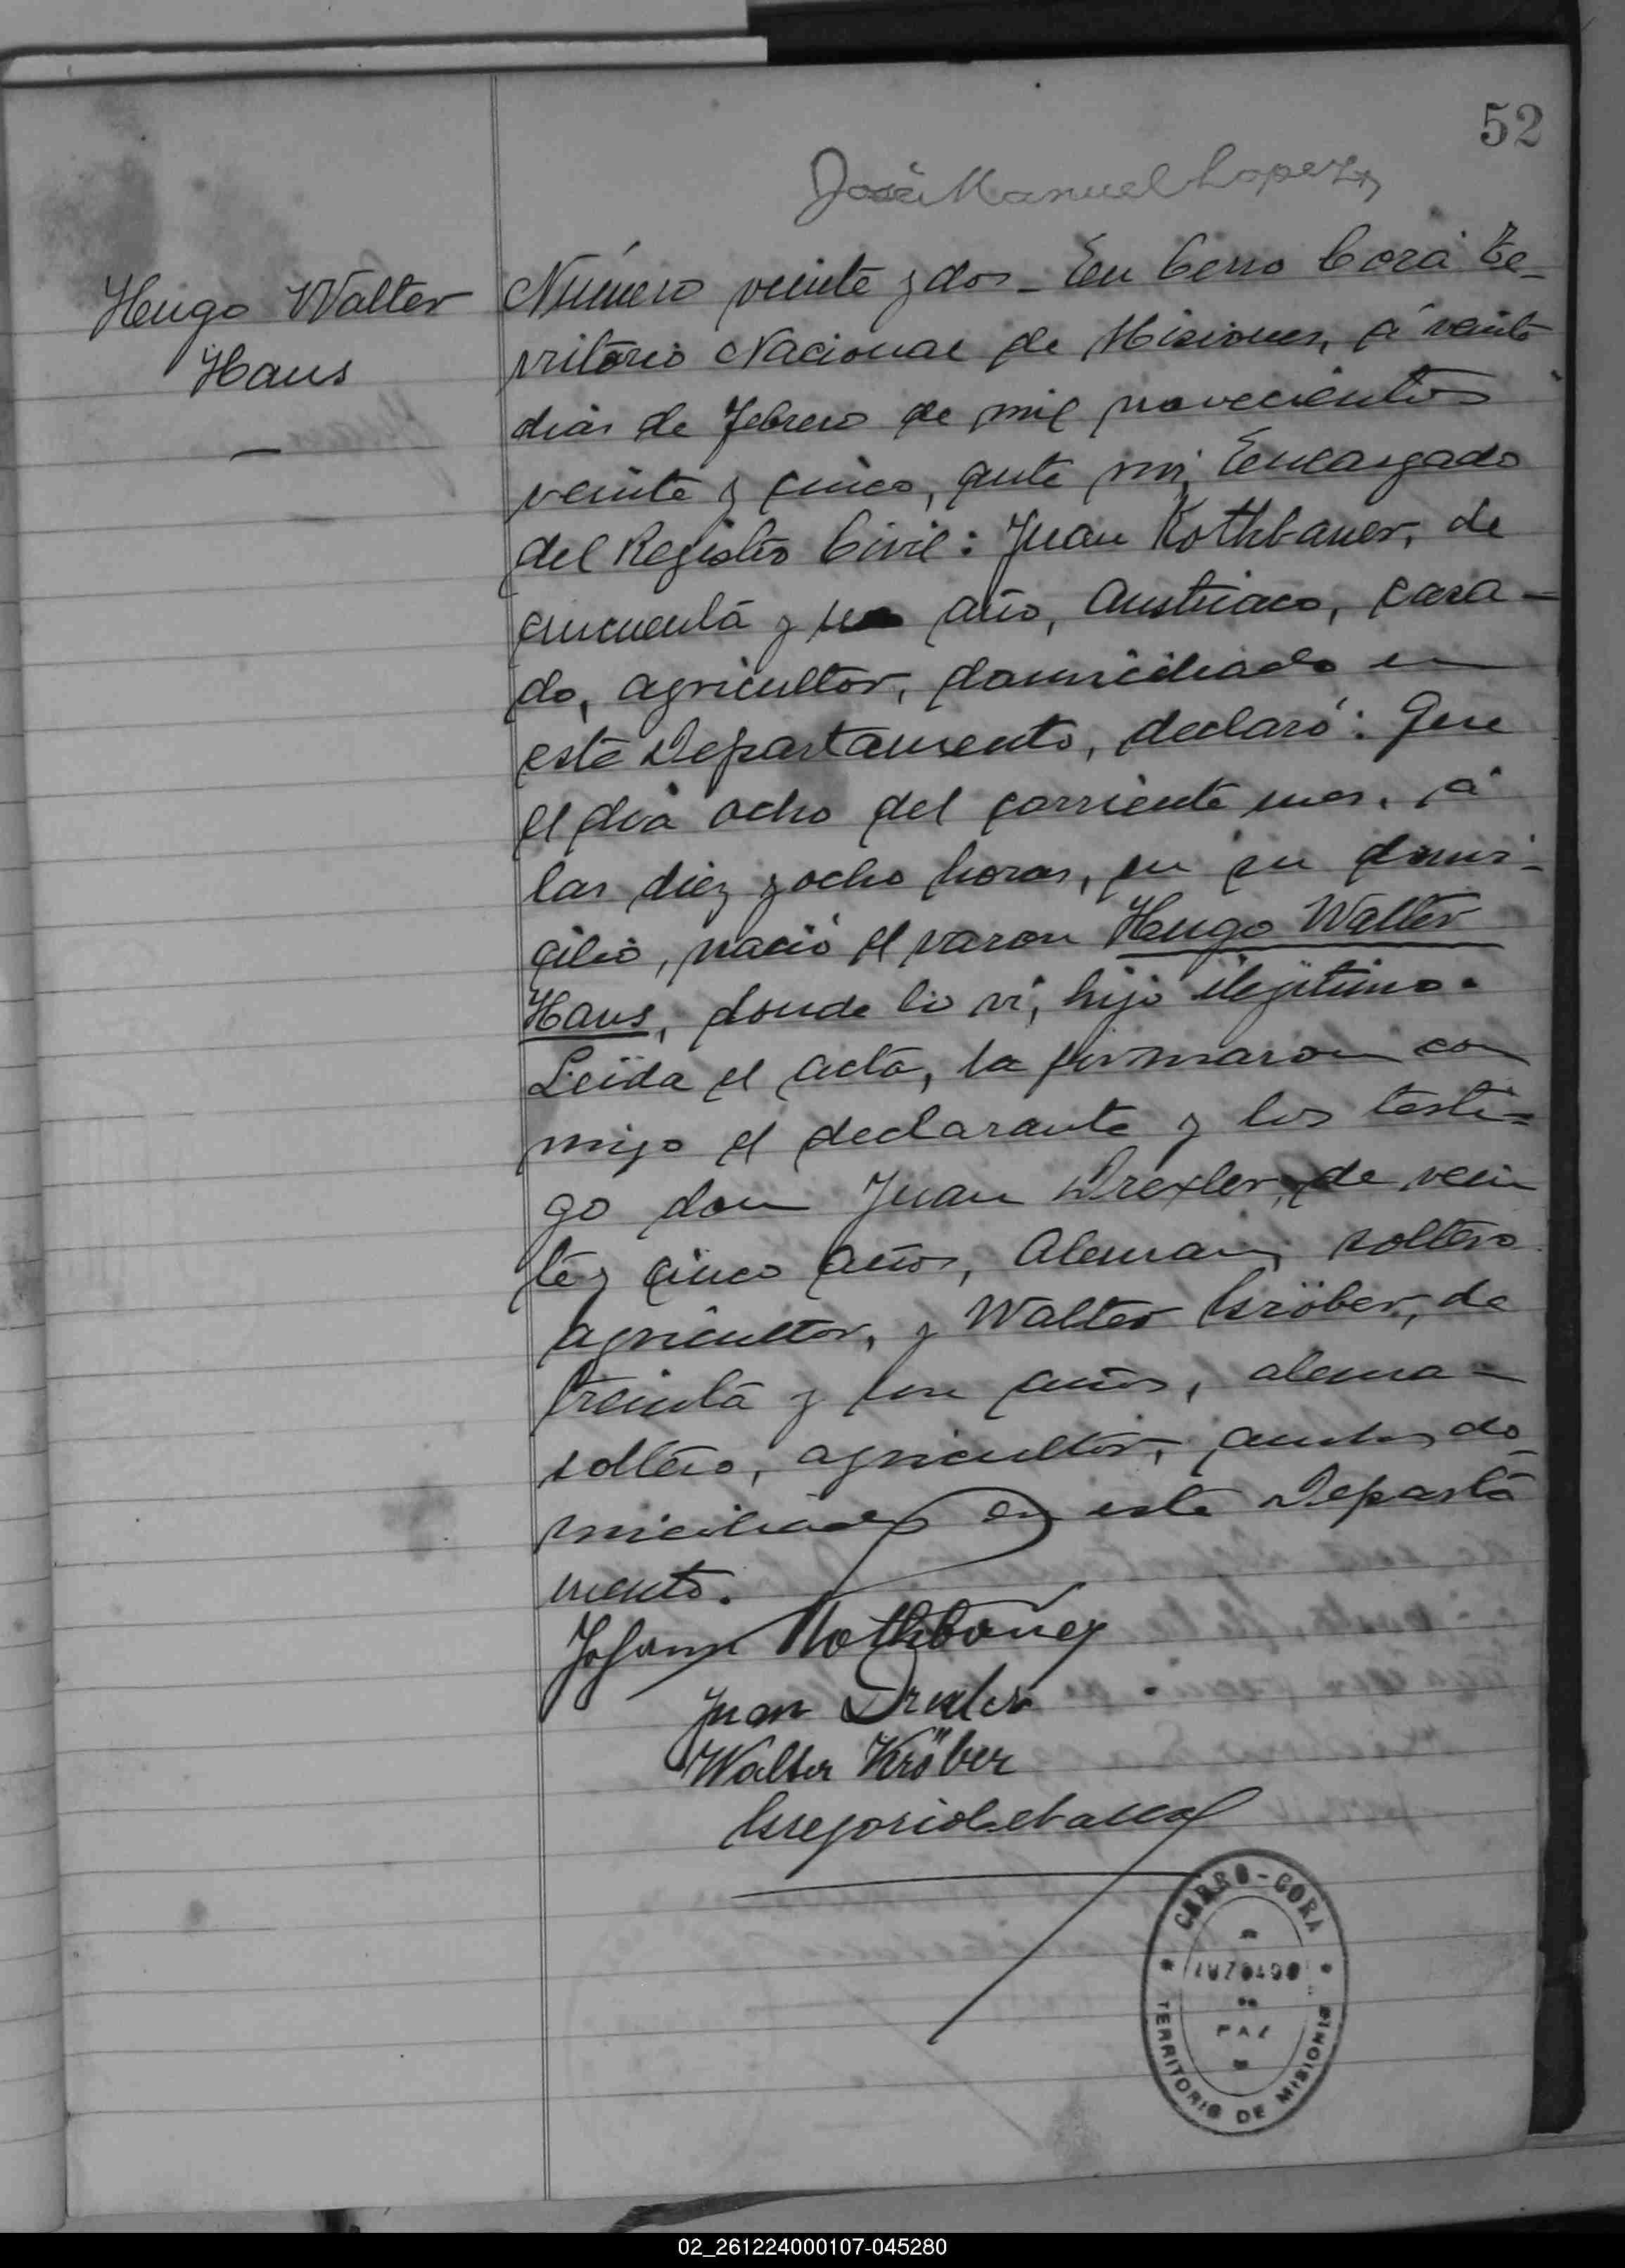 52
José Manuel Lopez
Hugo Walter
Haus
Número veinte y dos_ En Cerro Corá Te-
rritorio Nacional de Misiones, á veinte
dias de Febrero de mil novecientos
veinte y cinco, ante mi, Encargado
del Registro Civil: Juan Rothbauer, de
cincuenta y un año, Austriaco, casa-
do, agricultor, domiciliado en
este Departamento, declaró: Que
el dia ocho del corriente mes, á
las diez y ocho horas, en su domi-
cilio, nació el varon Hugo Walter
Haus, donde lo vi, hijo ilegitimo.
Leida el acta, la firmaron con
migo el declarante y los testi-
go don Juan Drexler, de vein
te y cinco años, Aleman, soltero
agricultor, y Walter Gröber, de
treinta y un años, aleman
soltero, agricultor, ambos do-
miciliados en este Departa
mento.
Johann Rothbauer
Juan Drexler
Walter Kröber
Gregorio
CERRO-CORA
JUZGADO
DE
PAZ
TERRITORIO DE MISIONES
02_261224000107-045280